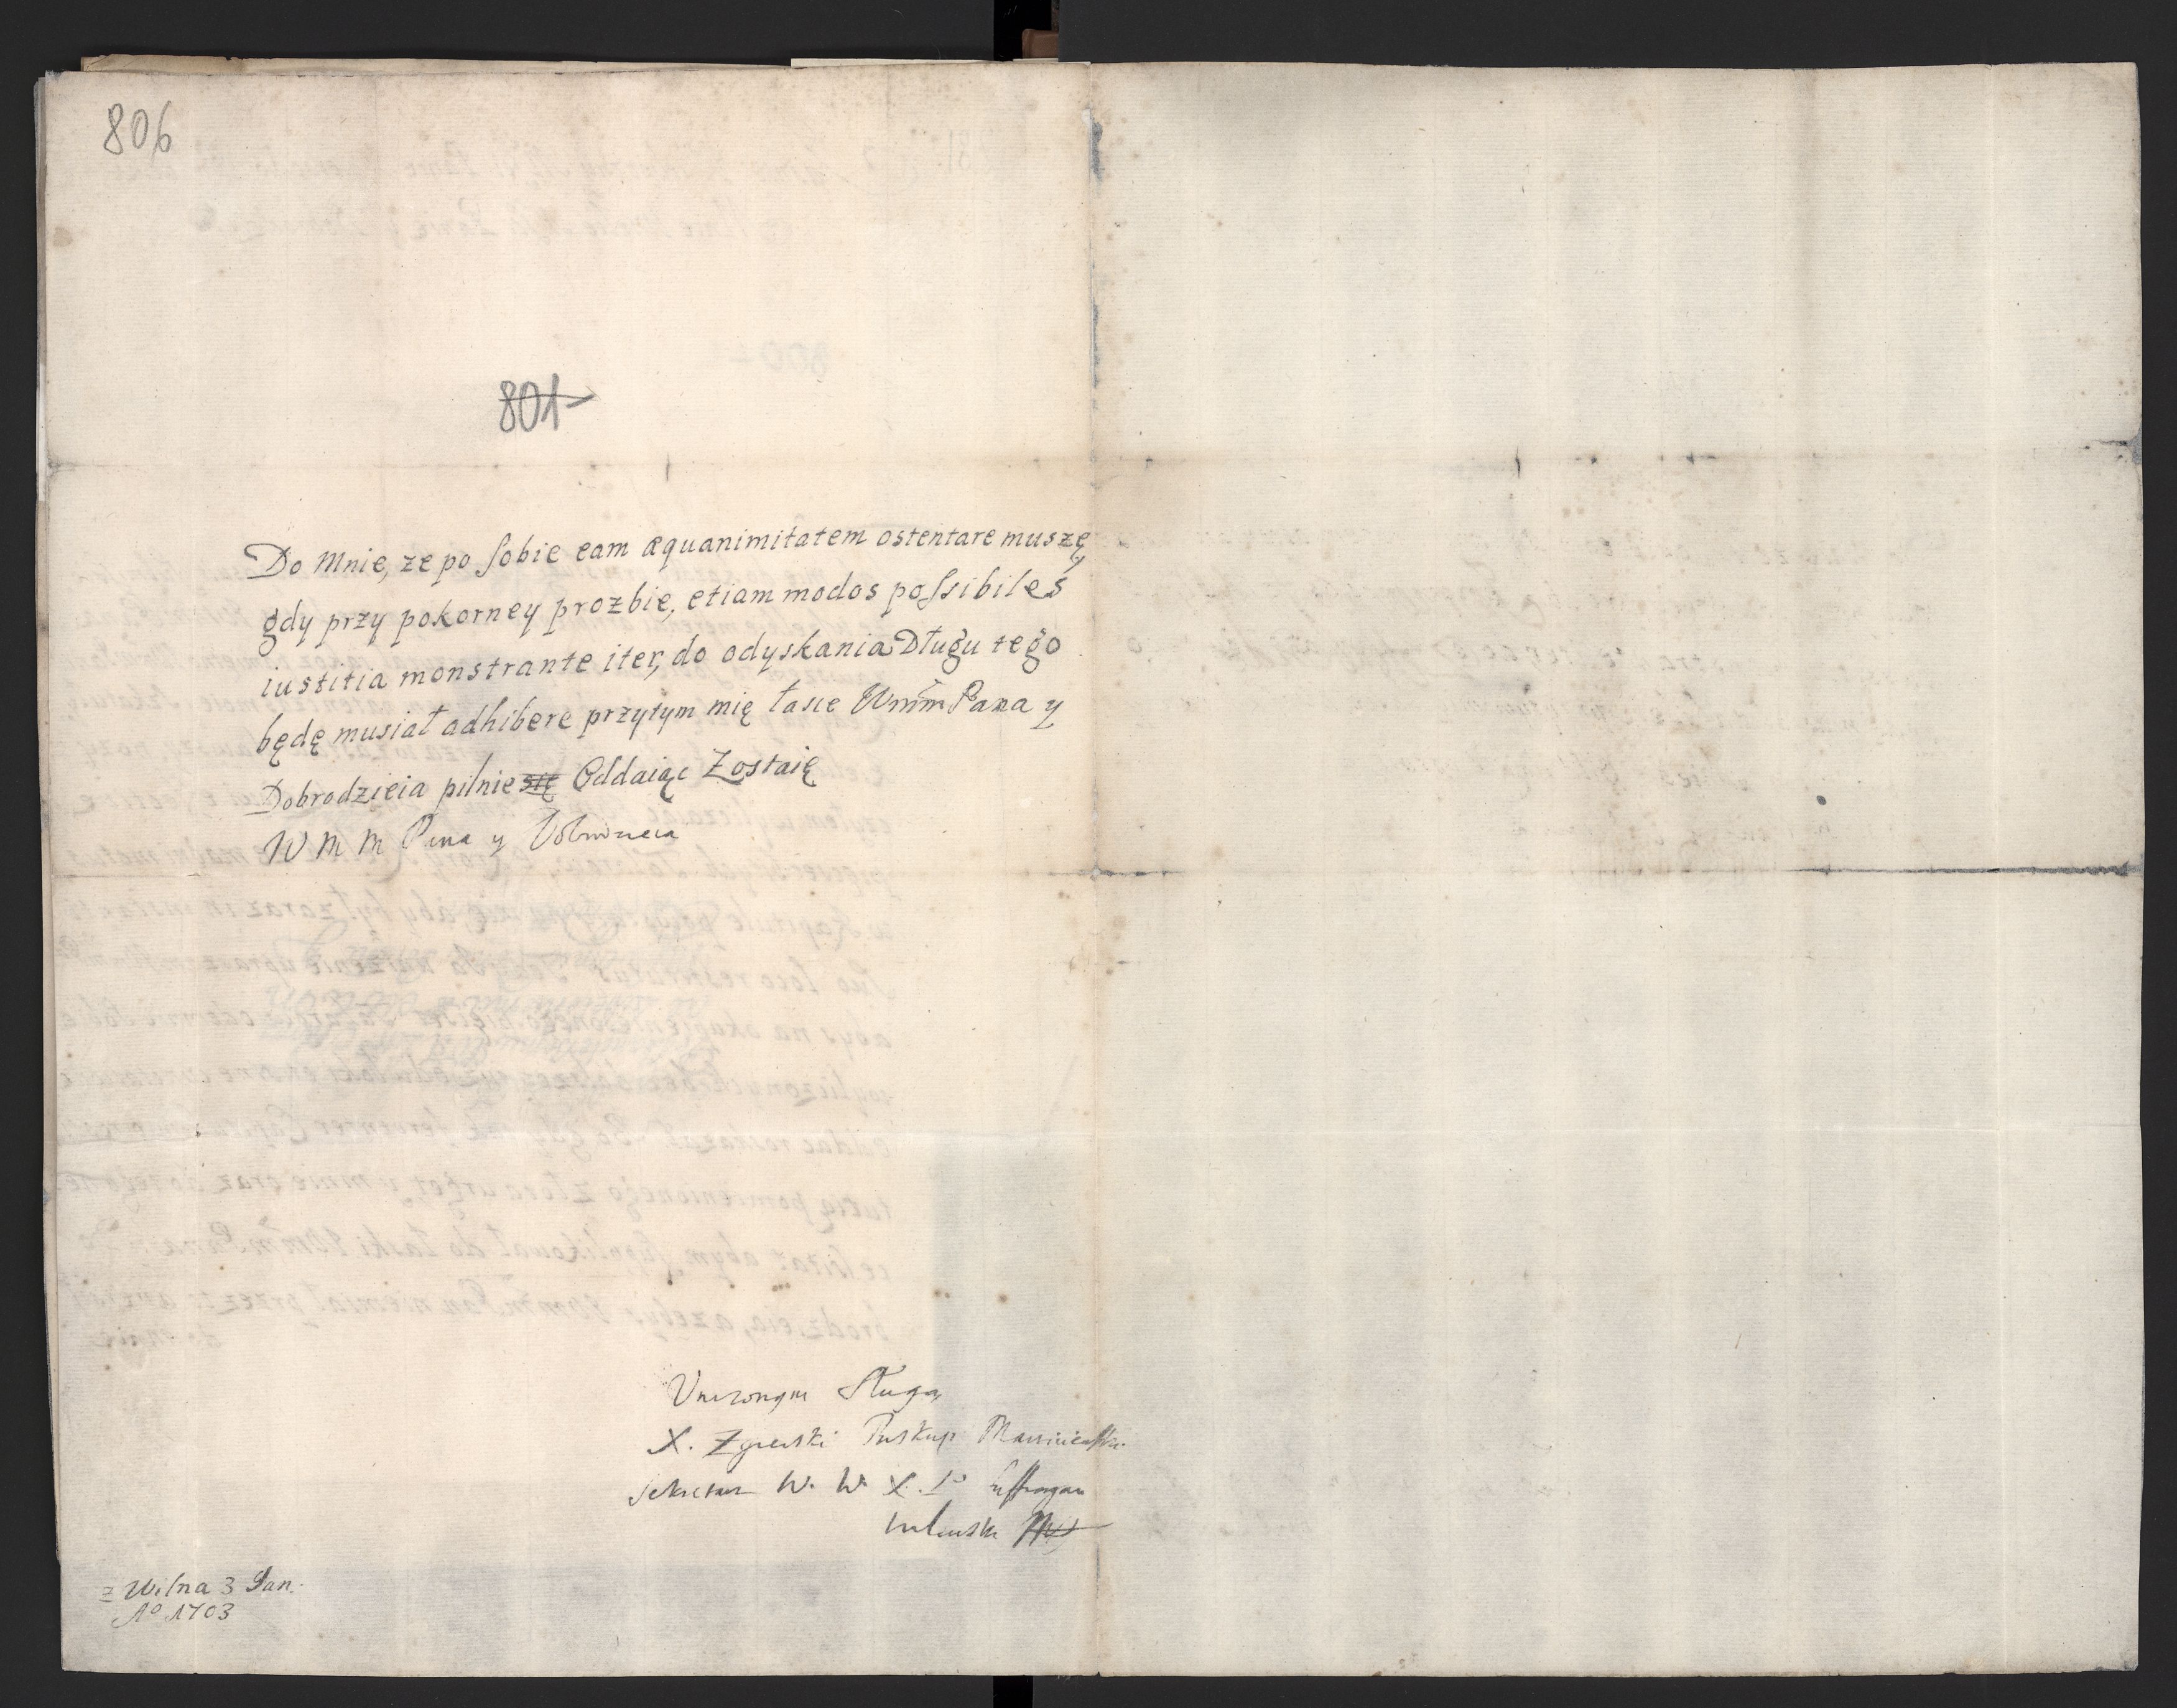 806
801
Do Mnie, ze po sobie eam æquanimitatem ostentare muszę
gdy przy pokorney prozbie, etiam modos possibiles
iustitia monstrante iter, do odyskania Długu tego
będę musiał adhibere przytym mię łasce Wmm Pana y
Dobrodzieia pilnie się Oddaiąc Zostaię
W M M Pana y Dobrodzieia
Unizonym Sługą
X. Zgierski Biskup
Sekretarz W. W. X. L. Suffragan
Wilenski
z Wilna 3 Jan.
Aº 1703